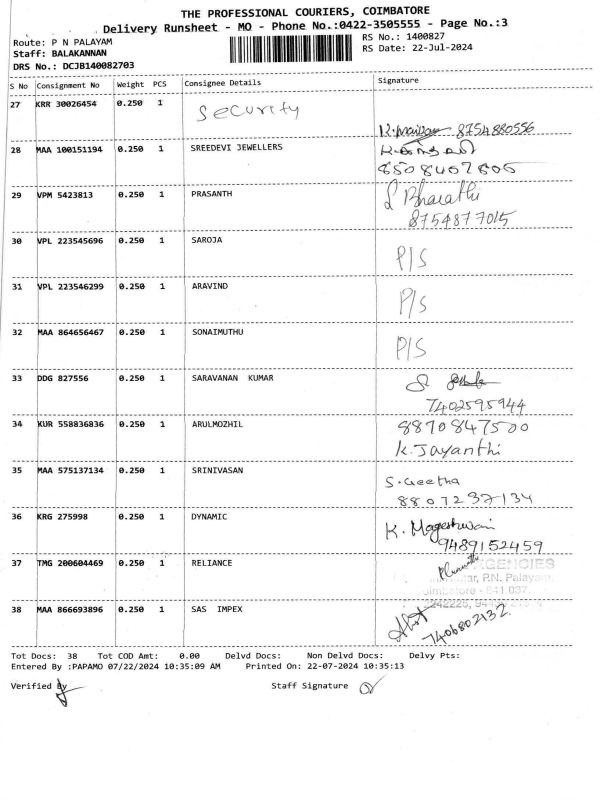 THE PROFESSIONAL COURIERS, COIMBATORE
Delivery Runsheet - MO - Phone No.:0422-3505555 - Page No.:3
Route: P N PALAYAM
RS No.: 1400827
Staff: BALAKANNAN
RS Date: 22-Jul-2024
DRS No.: DCJB140082703
S No Consignment No Weight PCS Consignee Details Signature
27 KRR 30026454 0.250 1 Security
8754880556
28 MAA 100151194 0.250 1 SREEDEVI JEWELLERS
8508407606
29 VPM 5423813 0.250 1 PRASANTH Bharathi
8754877015
30 VPL 223545696 0.250 1 SAROJA P/S
31 VPL 223546299 0.250 1 ARAVIND P/S
32 MAA 864656467 0.250 1 SONAIMUTHU P/S
33 DDG 827556 0.250 1 SARAVANAN KUMAR
7402595944
34 KUR 558836836 0.250 1 ARULMOZHIL 8870847500
K. Jayanthi
35 MAA 575137134 0.250 1 SRINIVASAN S. Geetha
8807237134
36 KRG 275998 0.250 1 DYNAMIC K. Mageshwari
9489152459
37 TMG 200604469 0.250 1 RELIANCE AGENCIES
P.N. Palayam,
Coimbatore - 641 037.
38 MAA 866693896 0.250 1 SAS IMPEX
7406802132
Tot Docs: 38 Tot COD Amt: 0.00 Delvd Docs: Non Delvd Docs: Delvy Pts:
Entered By :PAPAMO 07/22/2024 10:35:09 AM Printed On: 22-07-2024 10:35:13
Verified By Staff Signature